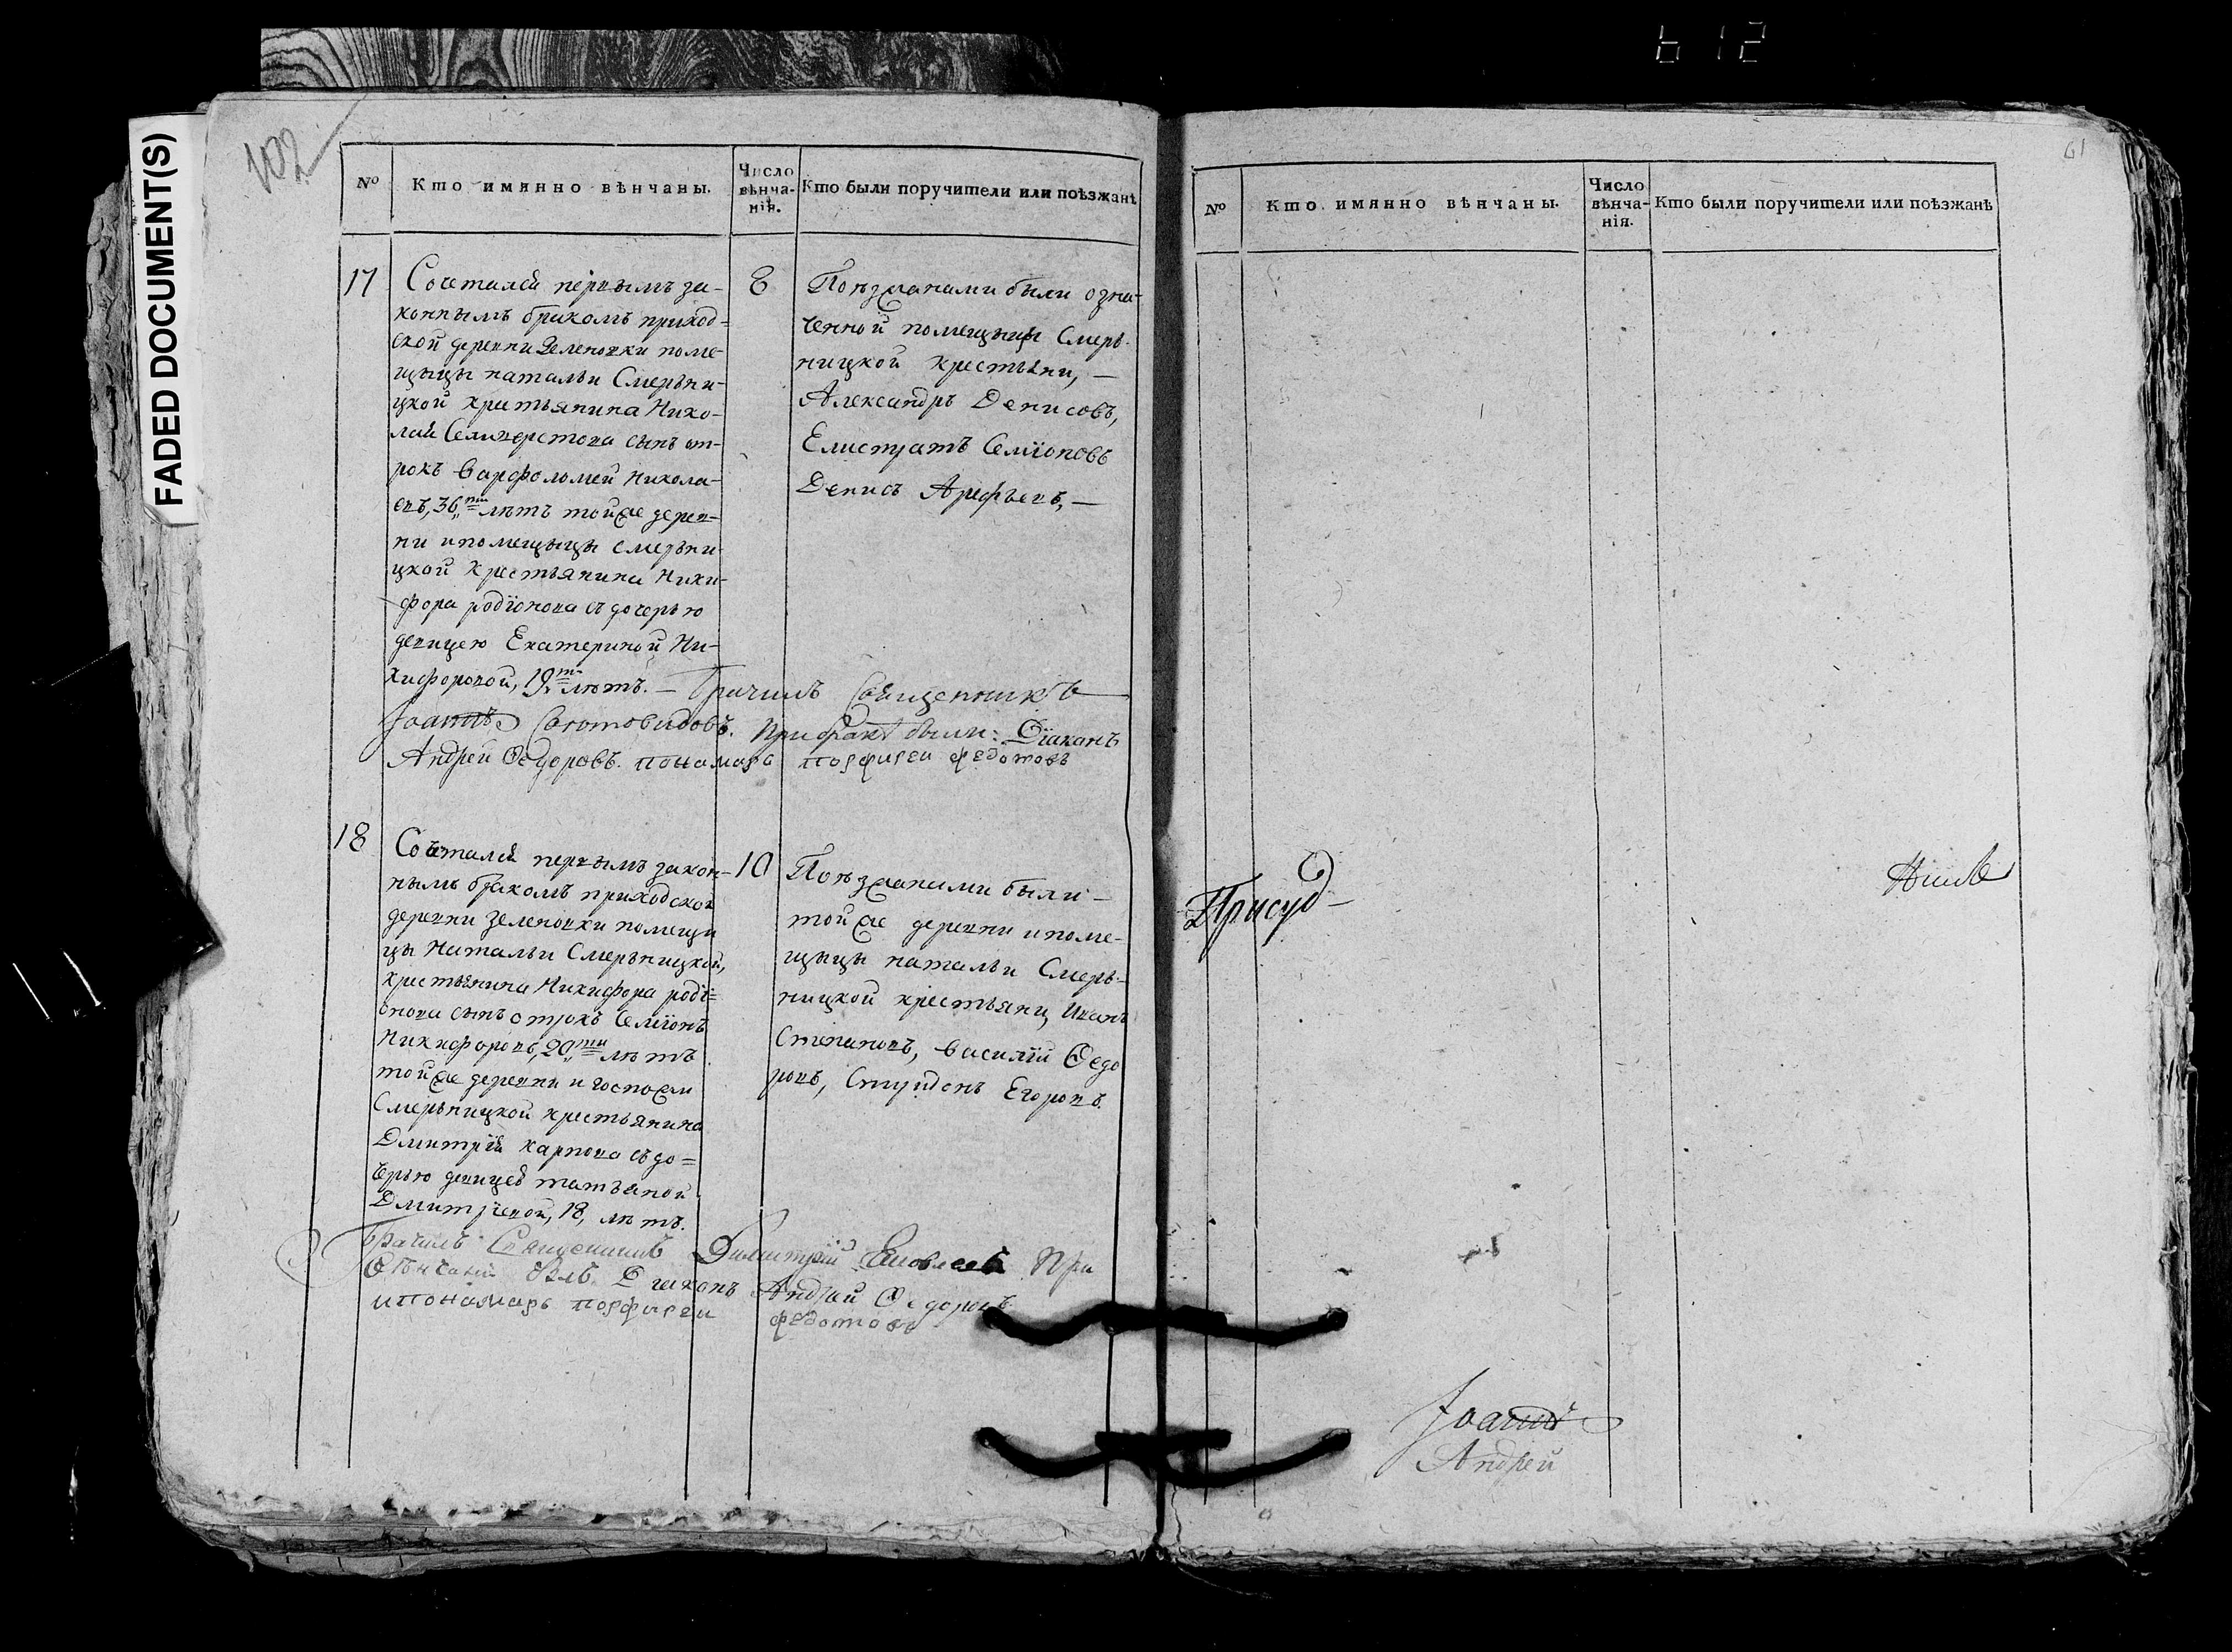 612
FADED DOCUMENT(S)
102
№ Кто имянно вѣнчаны. Число вѣнча-нія. Кто были поручители или поѣзжанѣ
17
Сочетался первымъ за-
коннымъ бракомъ приход=
ской деревни Зеленовки поме-
щыцы натальи Смерьни-
цкой крестьянина Нико-
лая Селиверстова сынъ от-
рокъ варфоломей Никола-
евъ, 36, лѣтъ тойже дерев-
ни ипомещыцы смерьни-
цкой крестьянина Ники-
фора родїонова съ дочерью
девицею Екатериной Ни-
кифоровой, 19, лѣтъ. —
8
Поѣзжанами были озна-
ченной помещыцы Смерь-
ницкой крестьяни, —
Александръ Денисовъ,
Елистратъ Семїоновъ
Денисъ Арефьевъ, —
Брачилъ Священникъ
Іоаннъ Святовидовъ. При бракѣ были: Дїаконъ
Андрей Ѳедоровъ. пономарь порфирей федотовъ
18
Сочетался первымъ закон-
нымъ бракомъ приходской
деревни зеленовки помещи
цы Натальи Смерьницкой,
крестьянина Никифора родї=
онова сынъ отрокъ Семїонъ
Никифоровъ, 20, лѣтъ
тойже деревни и госпожи
Смерьницкой крестьянина
Дмитрїя карпова съдо=
черью девицей татьяной
Дмитрїевой, 18, лѣтъ.
10
Поѣзжанами были —
тойже деревни ипоме-
щыцы натальи Смерь-
ницкой крестьяни, Иванъ
Степановъ, василїй Ѳедо
ровъ, Спиридонъ Егоровъ.
Брачилъ Священникъ Димитрїй При
Дїаконъ Андрей Ѳедоровъ
ипономарь порфирей федотовъ
61
№ Кто имянно вѣнчаны. Число вѣнча-нія. Кто были поручители или поѣзжанѣ
Присуд-
Іоаннъ
Андрей